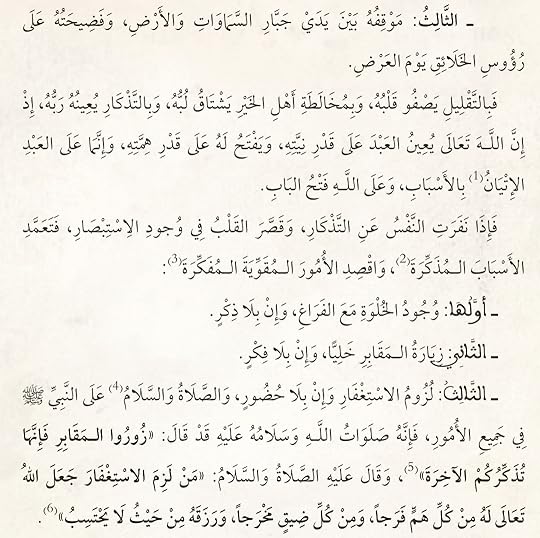 ـ الثَّالِثُ: مَوْقِفُهُ بَيْنَ يَدَيْ جَبَّارِ السَّمَاوَاتِ وَالأَرْضِ، وَفَضِيحَتُهُ عَلَى
رُؤُوسِ الخَلَائِقِ يَوْمَ العَرْضِ.
فَبِالتَّقْلِيلِ يَصْفُو قَلْبُهُ، وَبِمُخَالَطَةِ أَهْلِ الخَيْرِ يَشْتَاقُ لُبُّهُ، وَبِالتَّذْكَارِ يُعِينُهُ رَبُّهُ، إِذْ
إِنَّ اللَّهَ تَعَالَى يُعِينُ العَبْدَ عَلَى قَدْرِ نِيَّتِهِ، وَيَفْتَحُ لَهُ عَلَى قَدْرِ هِمَّتِهِ، وَإِنَّمَا عَلَى العَبْدِ
الإِتْيَانُ(1) بِالأَسْبَابِ، وَعَلَى اللَّهِ فَتْحُ البَابِ.
فَإِذَا نَفَرَتِ النَّفْسُ عَنِ التَّذْكَارِ، وَقَصَّرَ القَلْبُ فِي وُجُودِ الِاسْتِبْصَارِ، فَتَعَمَّدِ
الأَسْبَابَ الـمُذَكِّرَةَ(2)، وَاقْصِدِ الأُمُورَ الـمُقَوِّيَةَ الـمُفَكِّرَةَ(3):
ـ أَوَّلُهَا: وُجُودُ الخُلْوَةِ مَعَ الفَرَاغِ، وَإِنْ بِلَا ذِكْرٍ.
ـ الثَّانِي: زِيَارَةُ الـمَقَابِرِ خَلِيًّا، وَإِنْ بِلَا فِكْرٍ.
ـ الثَّالِثُ: لُزُومُ الاسْتِغْفَارِ وَإِنْ بِلَا حُضُورٍ، وَالصَّلَاةُ وَالسَّلَامُ(4) عَلَى النَّبِيِّ ﷺ
فِي جَمِيعِ الأُمُورِ، فَإِنَّهُ صَلَوَاتُ اللَّهِ وَسَلَامُهُ عَلَيْهِ قَدْ قَالَ: «زُورُوا الـمَقَابِرَ فَإِنَّهَا
تُذَكِّرُكُمُ الآخِرَةَ»(5)، وَقَالَ عَلَيْهِ الصَّلَاةُ وَالسَّلَامُ: «مَنْ لَزِمَ الاسْتِغْفَارَ جَعَلَ اللهُ
تَعَالَى لَهُ مِنْ كُلِّ هَمٍّ فَرَجاً، وَمِنْ كُلِّ ضِيقٍ مَخْرَجاً، وَرَزَقَهُ مِنْ حَيْثُ لَا يَحْتَسِبُ»(6).